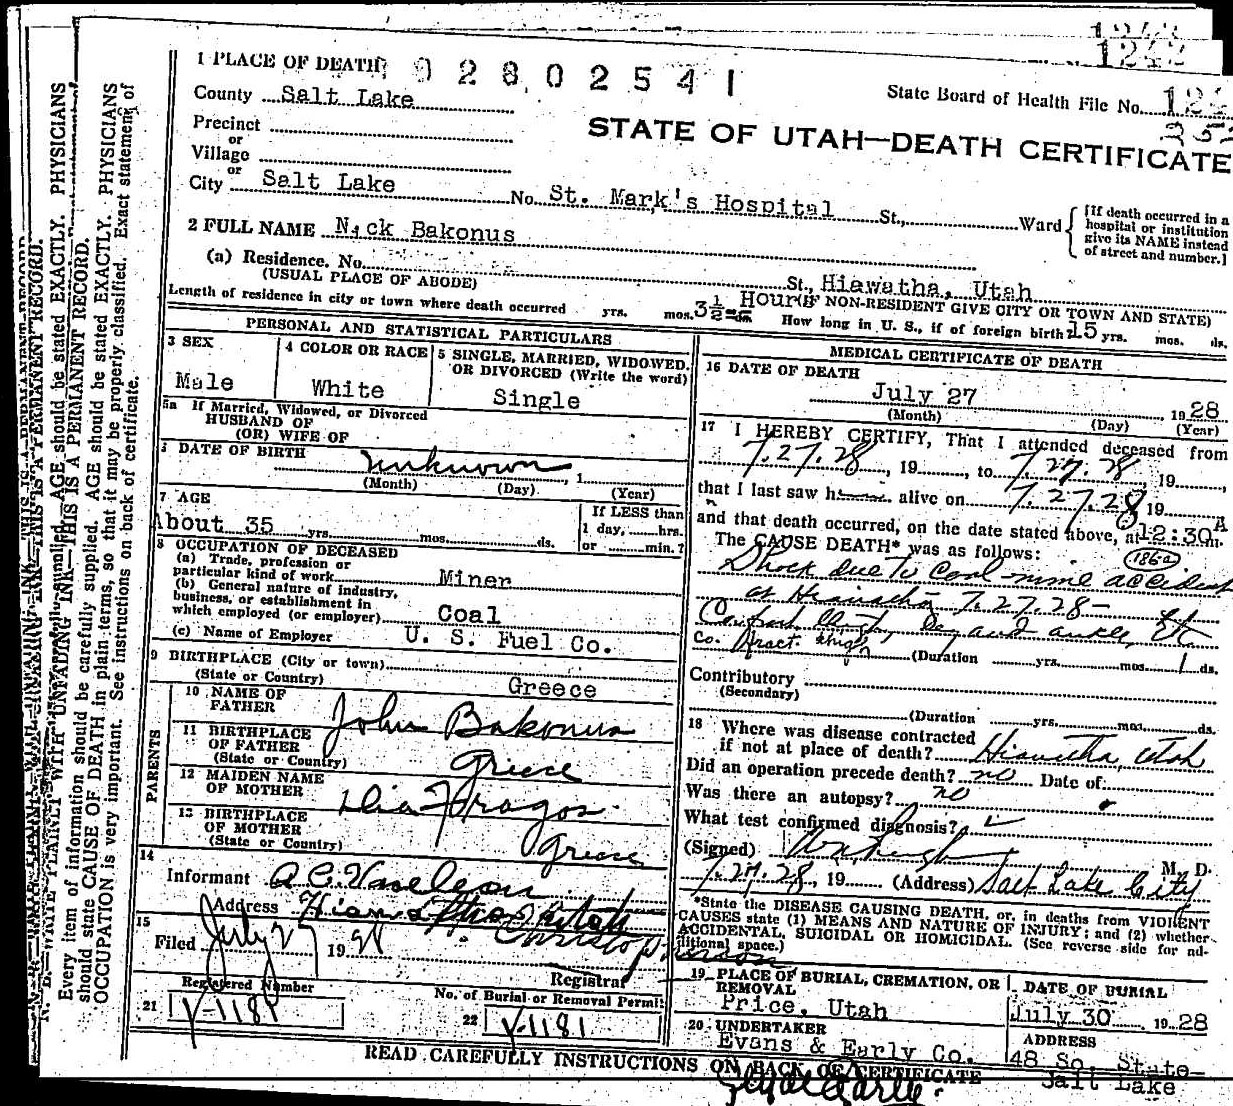 1242
1242
1 PLACE OF DEATH 0 2 8 0 2 5 4 1
State Board of Health File No.
County Salt Lake
STATE OF UTAH—DEATH CERTIFICATE
Precinct
or
Village
or
City Salt Lake No. St. Mark's Hospital St., Ward
[If death occurred in a hospital or institution give its NAME instead of street and number.]
2 FULL NAME Nick Bakonus
(a) Residence. No. St., Hiawatha, Utah
(USUAL PLACE OF ABODE) (IF NON-RESIDENT GIVE CITY OR TOWN AND STATE)
Length of residence in city or town where death occurred yrs. mos. 3 1/2 Hours ds. How long in U. S., if of foreign birth? 15 yrs. mos. ds.
PERSONAL AND STATISTICAL PARTICULARS
3 SEX
Male
4 COLOR OR RACE
White
5 SINGLE, MARRIED, WIDOWED, OR DIVORCED (Write the word)
Single
5a If Married, Widowed, or Divorced
HUSBAND OF
(OR) WIFE OF
6 DATE OF BIRTH unknown, 1
(Month) (Day) (Year)
7 AGE
About 35 yrs. mos. ds.
If LESS than
1 day, hrs.
or min.?
8 OCCUPATION OF DECEASED
(a) Trade, profession or
particular kind of work Miner
(b) General nature of industry,
business, or establishment in
which employed (or employer) Coal
(c) Name of Employer U. S. Fuel Co.
9 BIRTHPLACE (City or town)
(State or Country) Greece
PARENTS
10 NAME OF
FATHER John Bakonus
11 BIRTHPLACE
OF FATHER
(State or Country) Greece
12 MAIDEN NAME
OF MOTHER
13 BIRTHPLACE
OF MOTHER
(State or Country) Greece
14
Informant
Address Hiawatha Utah
15
Filed July 27 1928
Registrar
Registered Number
21 V-1181
No. of Burial or Removal Permit
22 V-1181
MEDICAL CERTIFICATE OF DEATH
16 DATE OF DEATH
July 27, 1928
(Month) (Day) (Year)
17 I HEREBY CERTIFY, That I attended deceased from
7.27.28, 19, to 7.27.28, 19,
that I last saw h alive on 7.27.28 19
and that death occurred, on the date stated above, at 12:30 A m.
The CAUSE DEATH* was as follows:
186a
Shock due to coal-mine accident
at Hiawatha 7.27.28-
leg and ankle,
(Duration yrs. mos. 1 ds.
Contributory
(Secondary)
(Duration yrs. mos. ds.
18 Where was disease contracted
if not at place of death? Hiawatha, Utah
Did an operation precede death? no Date of:
Was there an autopsy? no
What test confirmed diagnosis?
(Signed) M. D.
7.27.28, 19 (Address) Salt Lake City
*State the DISEASE CAUSING DEATH, or, in deaths from VIOLENT
CAUSES state (1) MEANS AND NATURE OF INJURY; and (2) whether
ACCIDENTAL, SUICIDAL OR HOMICIDAL. (See reverse side for additional space.)
19 PLACE OF BURIAL, CREMATION, OR
REMOVAL
Price, Utah
DATE OF BURIAL
July 30 1928
20 UNDERTAKER
Evans & Early Co.
ADDRESS
48 So. State-
Salt Lake
READ CAREFULLY INSTRUCTIONS ON BACK OF CERTIFICATE
N. B.—WRITE PLAINLY WITH UNFADING INK—THIS IS A PERMANENT RECORD.
Every item of information should be carefully supplied. AGE should be stated EXACTLY. PHYSICIANS
should state CAUSE OF DEATH in plain terms, so that it may be properly classified. Exact statement of
OCCUPATION is very important. See instructions on back of certificate.